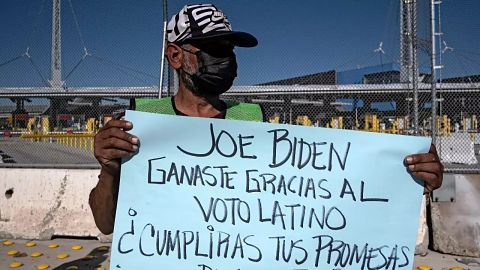 JOE BIDEN
GANASTE GRACIAS AL
VOTO LATINO
¿CUMPLIRAS TUS PROMESAS